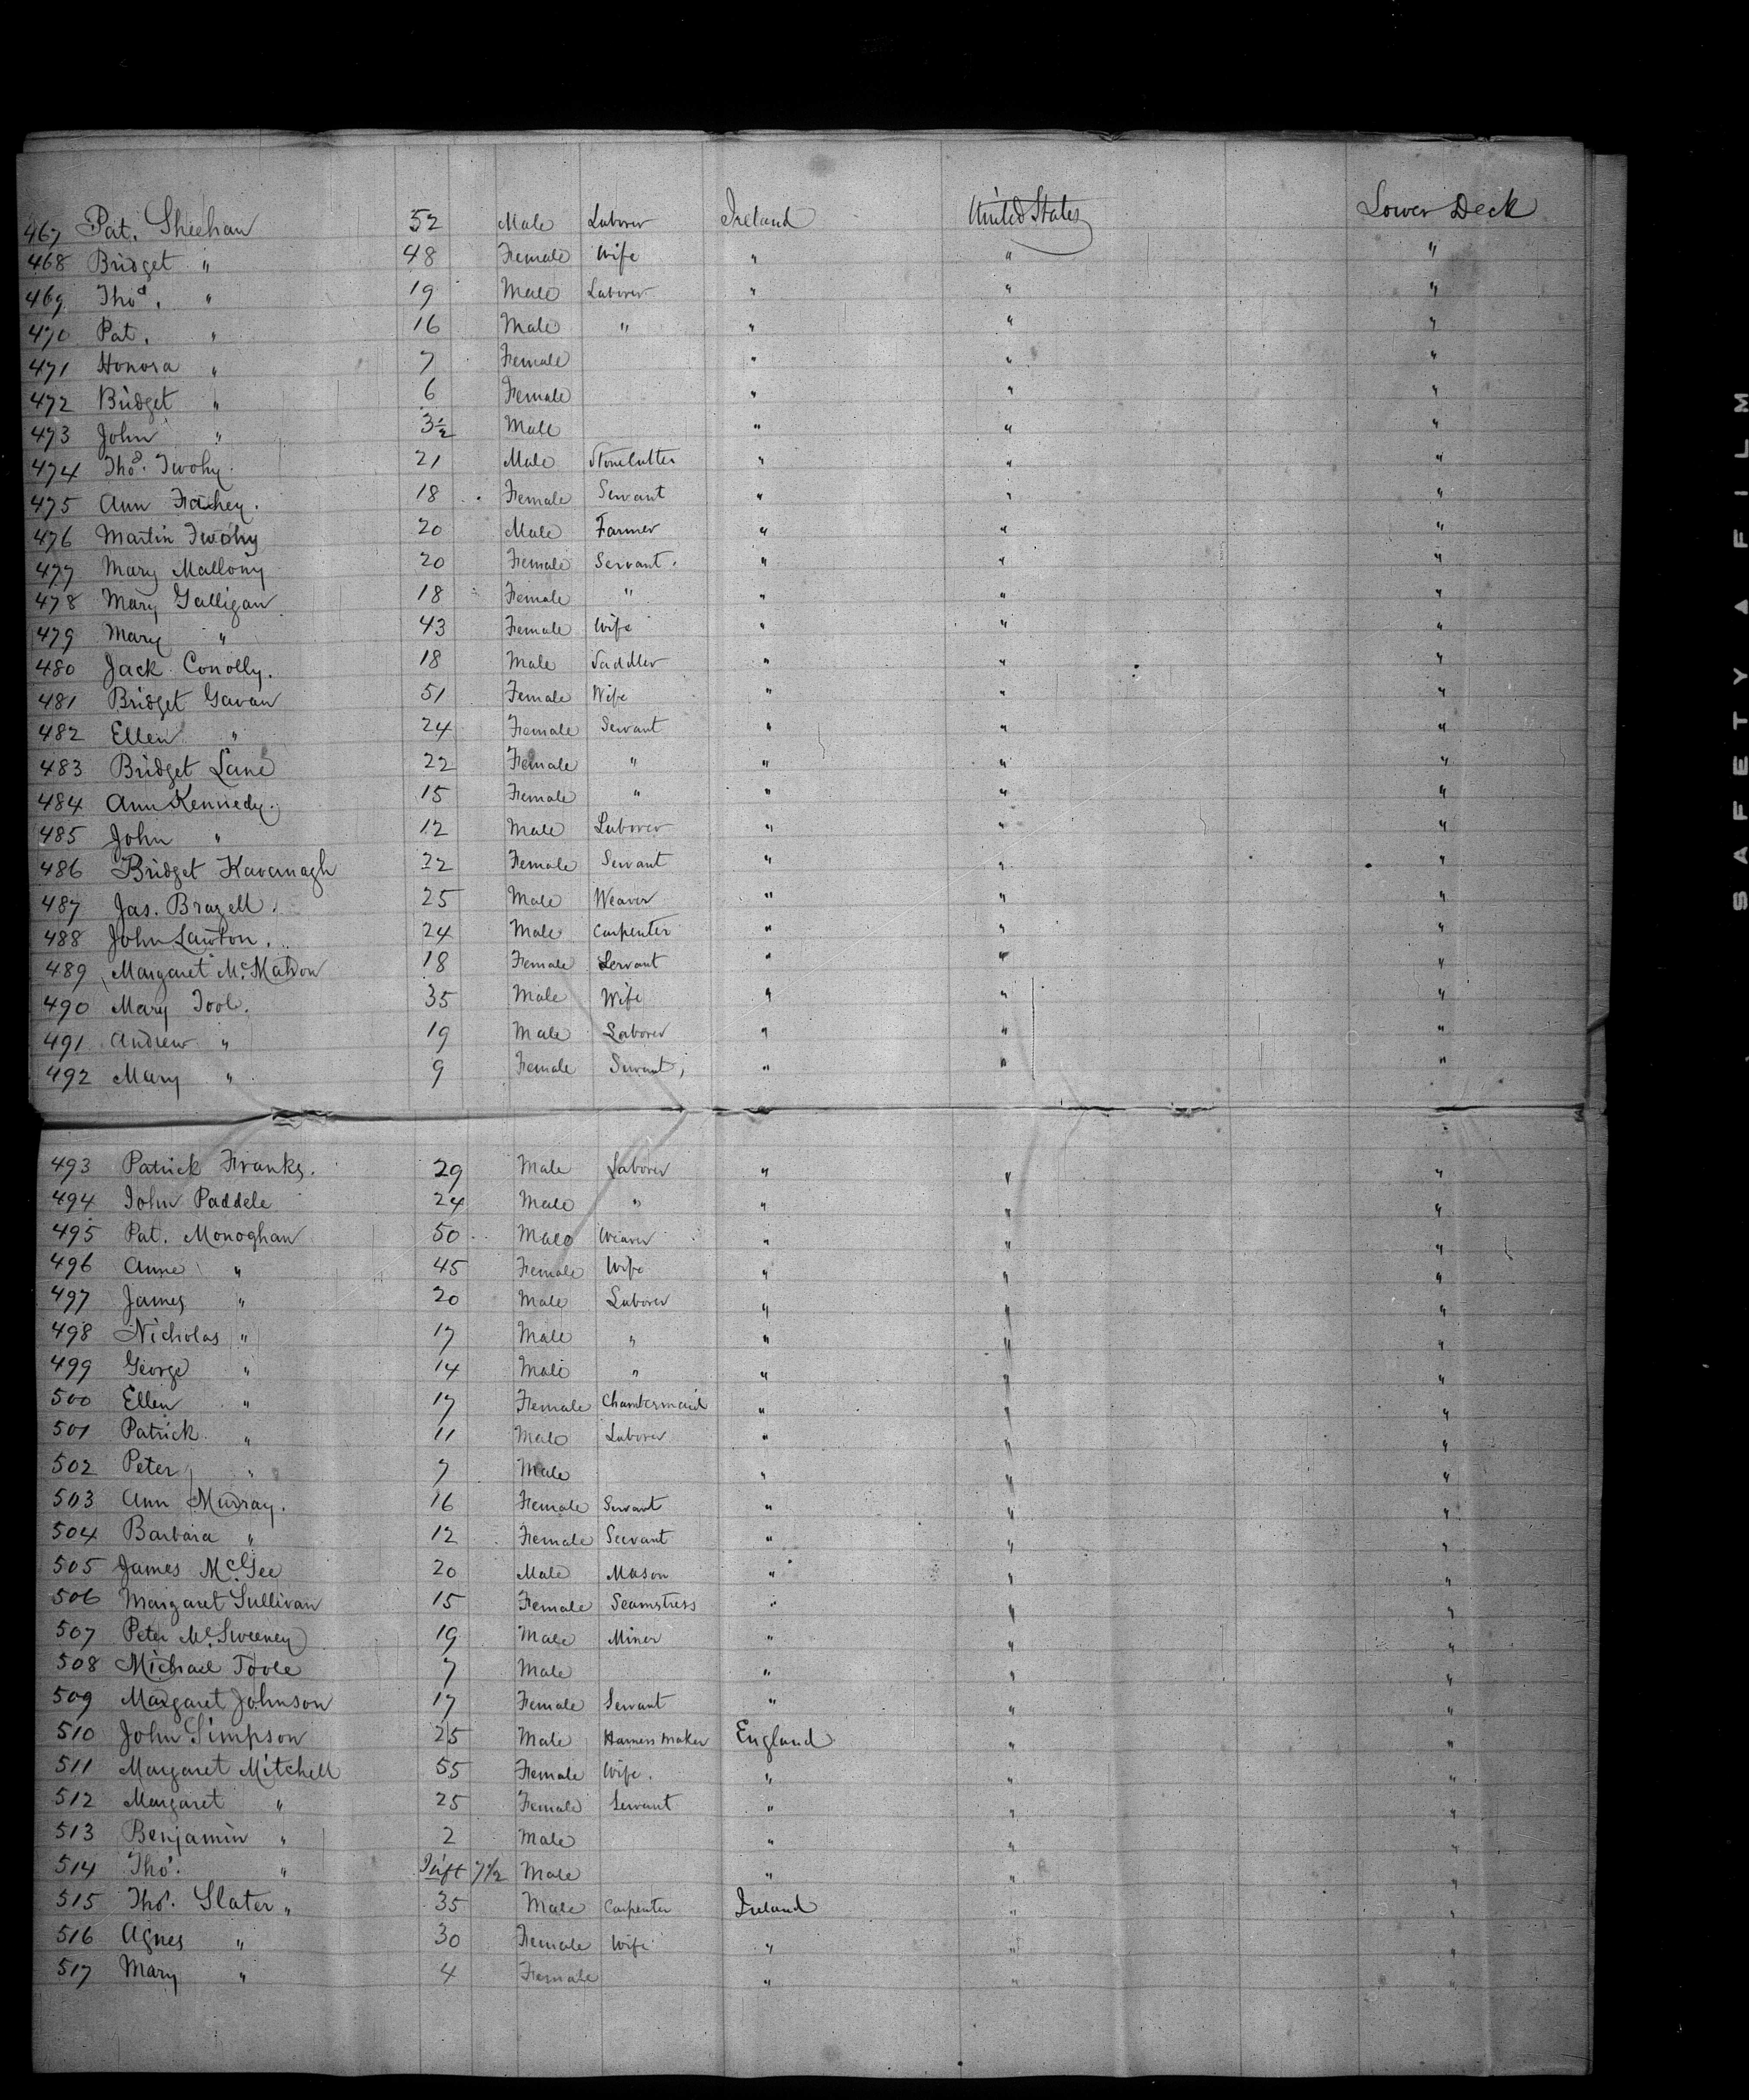 467 Pat. Sheehan 52 Male Laborer Ireland United States Lower Deck
468 Bridget " 48 Female Wife " " "
469 Thos. " 19 Male Laborer " " "
470 Pat. " 16 Male " " " "
471 Honora " 7 Female " " "
472 Bridget " 6 Female " " "
473 John " 3½ Male " " "
474 Thos. Twohy. 21 Male Stonecutter " " "
475 Ann Fachey. 18 Female Servant " " "
476 Martin Twohy 20 Male Farmer " " "
477 Mary Mallony 20 Female Servant. " " "
478 Mary Galligan 18 Female " " " "
479 Mary " 43 Female Wife " " "
480 Jack Conolly. 18 Male Saddler " " "
481 Bridget Gavan 51 Female Wife " " "
482 Ellen " 24 Female Servant " " "
483 Bridget Lane 22 Female " " " "
484 Ann Kennedy. 15 Female " " " "
485 John " 12 Male Laborer " " "
486 Bridget Kavanagh 22 Female Servant " " "
487 Jas. Brazell. 25 Male Weaver " " "
488 John Lawton. 24 Male Carpenter " " "
489 Margaret McMahon 18 Female Servant " " "
490 Mary Tool. 35 Male Wife " " "
491 Andrew " 19 Male Laborer " " "
492 Mary " 9 Female Servant, " " "
493 Patrick Franks. 29 Male Laborer " " "
494 John Paddele 24 Male " " " "
495 Pat. Monoghan 50 Male Weaver " " "
496 Anne " 45 Female Wife " " "
497 James " 20 Male Laborer " " "
498 Nicholas " 17 Male " " " "
499 George " 14 Male " " " "
500 Ellen " 17 Female Chambermaid " " "
501 Patrick " 11 Male Laborer " " "
502 Peter " 7 Male " " "
503 Ann Murray. 16 Female Servant " " "
504 Barbara " 12 Female Servant " " "
505 James McGee 20 Male Mason " " "
506 Margaret Sullivan 15 Female Seamstress " " "
507 Peter McSweeney 19 Male Miner " " "
508 Michael Toole 7 Male " " "
509 Margaret Johnson 17 Female Servant " " "
510 John Simpson 25 Male Harness maker England " "
511 Margaret Mitchell 55 Female Wife. " " "
512 Margaret " 25 Female Servant " " "
513 Benjamin " 2 Male " " "
514 Thos. " Inft 7½ Male " " "
515 Thos. Slater " 35 Male Carpenter Ireland " "
516 Agnes " 30 Female Wife " " "
517 Mary " 4 Female " " "
SAFETY ▲ FILM